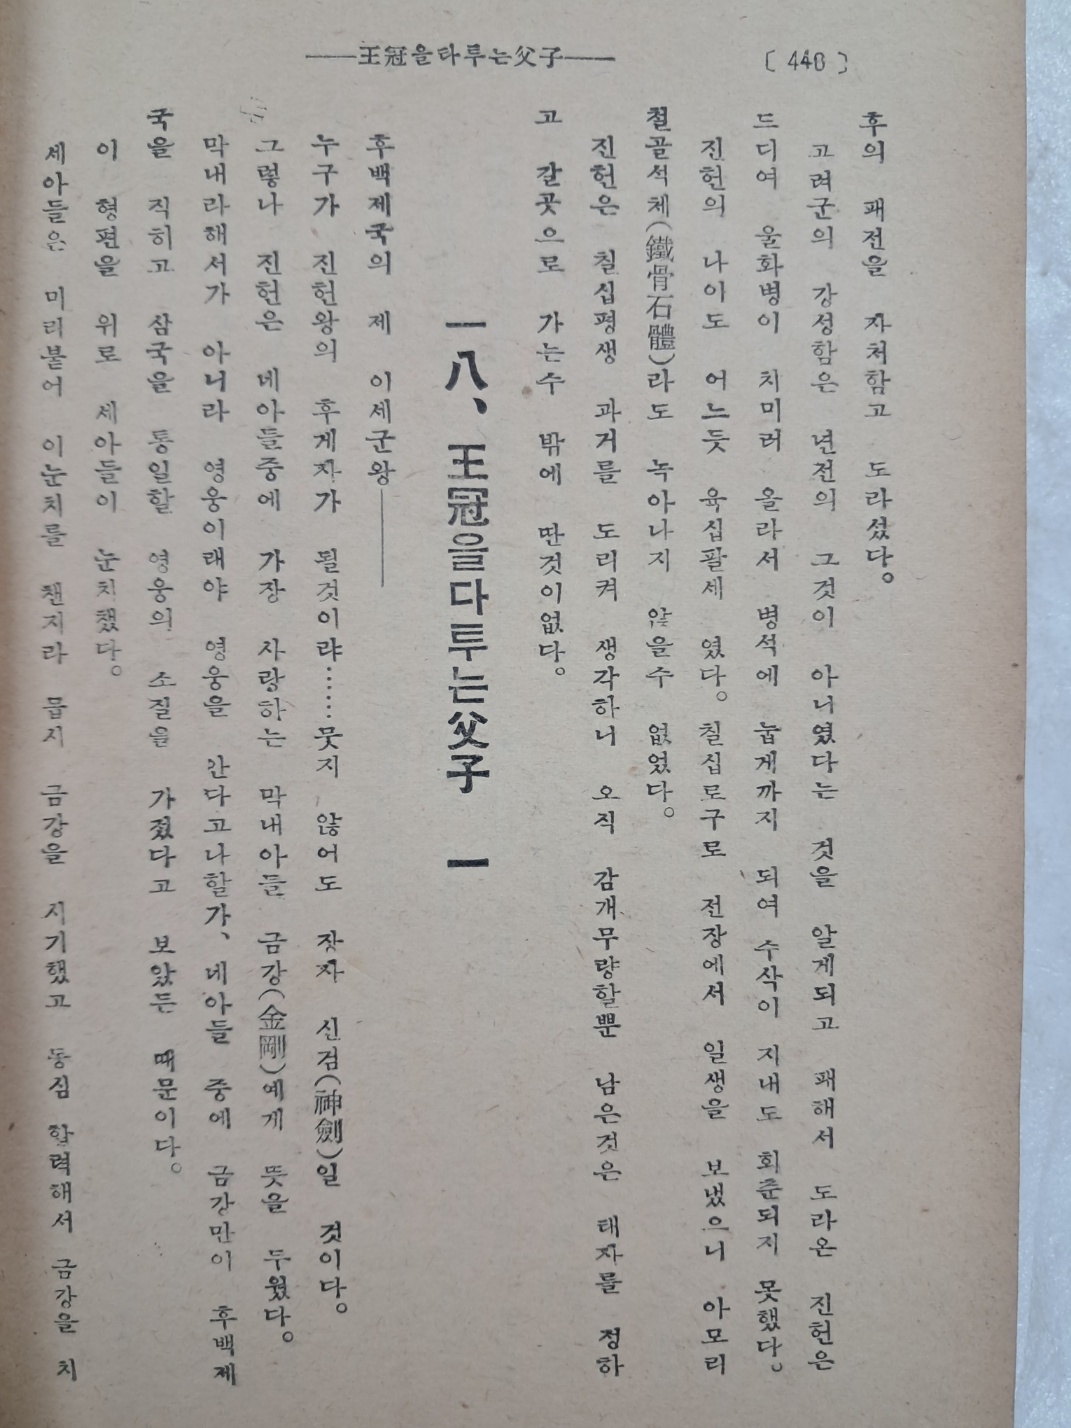 ——王冠을다투는父子——
〔446〕
후의 패전을 자처함고 도라섰다。
고려군의 강성함은 년전의 그것이 아니였다는 것을 알게되고 패해서 도라온 진헌은
드디여 울화병이 치미러 올라서 병석에 눕게까지 되여 수삭이 지내도 회춘되지 못했다。
진헌의 나이도 어느듯 육십팔세 였다。칠십로구로 전장에서 일생을 보냈으니 아모리
철골석체(鐵骨石體)라도 녹아나지 않을수 없었다。
진헌은 칠십평생 과거를 도리켜 생각하니 오직 감개무량할뿐 남은것은 태자를 정하
고 갈곳으로 가는수 밖에 딴것이없다。
一八、王冠을다투는父子 一
후백제국의 제 이세군왕——
누구가 진헌왕의 후게자가 될것이랴……뭇지 않어도 장자 신검(神劍)일 것이다。
그렇나 진헌은 네아들중에 가장 사랑하는 막내아들 금강(金剛)에게 뜻을 두웠다。
막내라해서가 아니라 영웅이래야 영웅을 안다고나할가、네아들 중에 금강만이 후백제
국을 직히고 삼국을 통일할 영웅의 소질을 가졌다고 보았든 때문이다。
이 형편을 위로 세아들이 눈치챘다。
세아들은 미리붙어 이눈치를 챈지라 몹시 금강을 시기했고 동심 합력해서 금강을 치